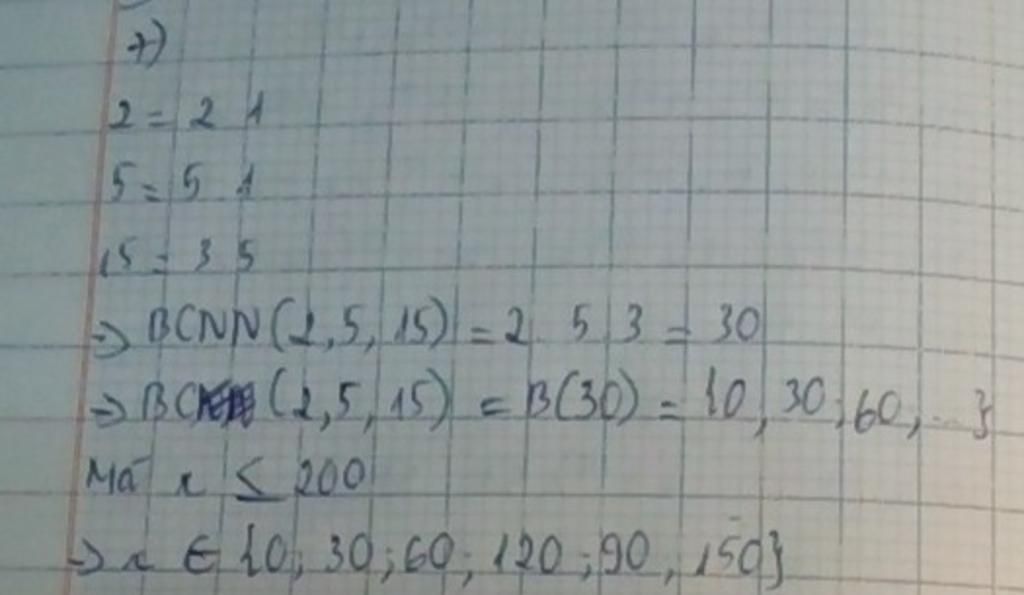 7)
2 = 2 1
5 = 5 1
15 = 3 5
=> BCNN(2,5,15) = 2 5 3 = 30
=> BC (2,5,15) = B(30) = {0, 30; 60, ...}
Mà x ≤ 200
=> x ∈ {0; 30; 60; 120; 90, 150}